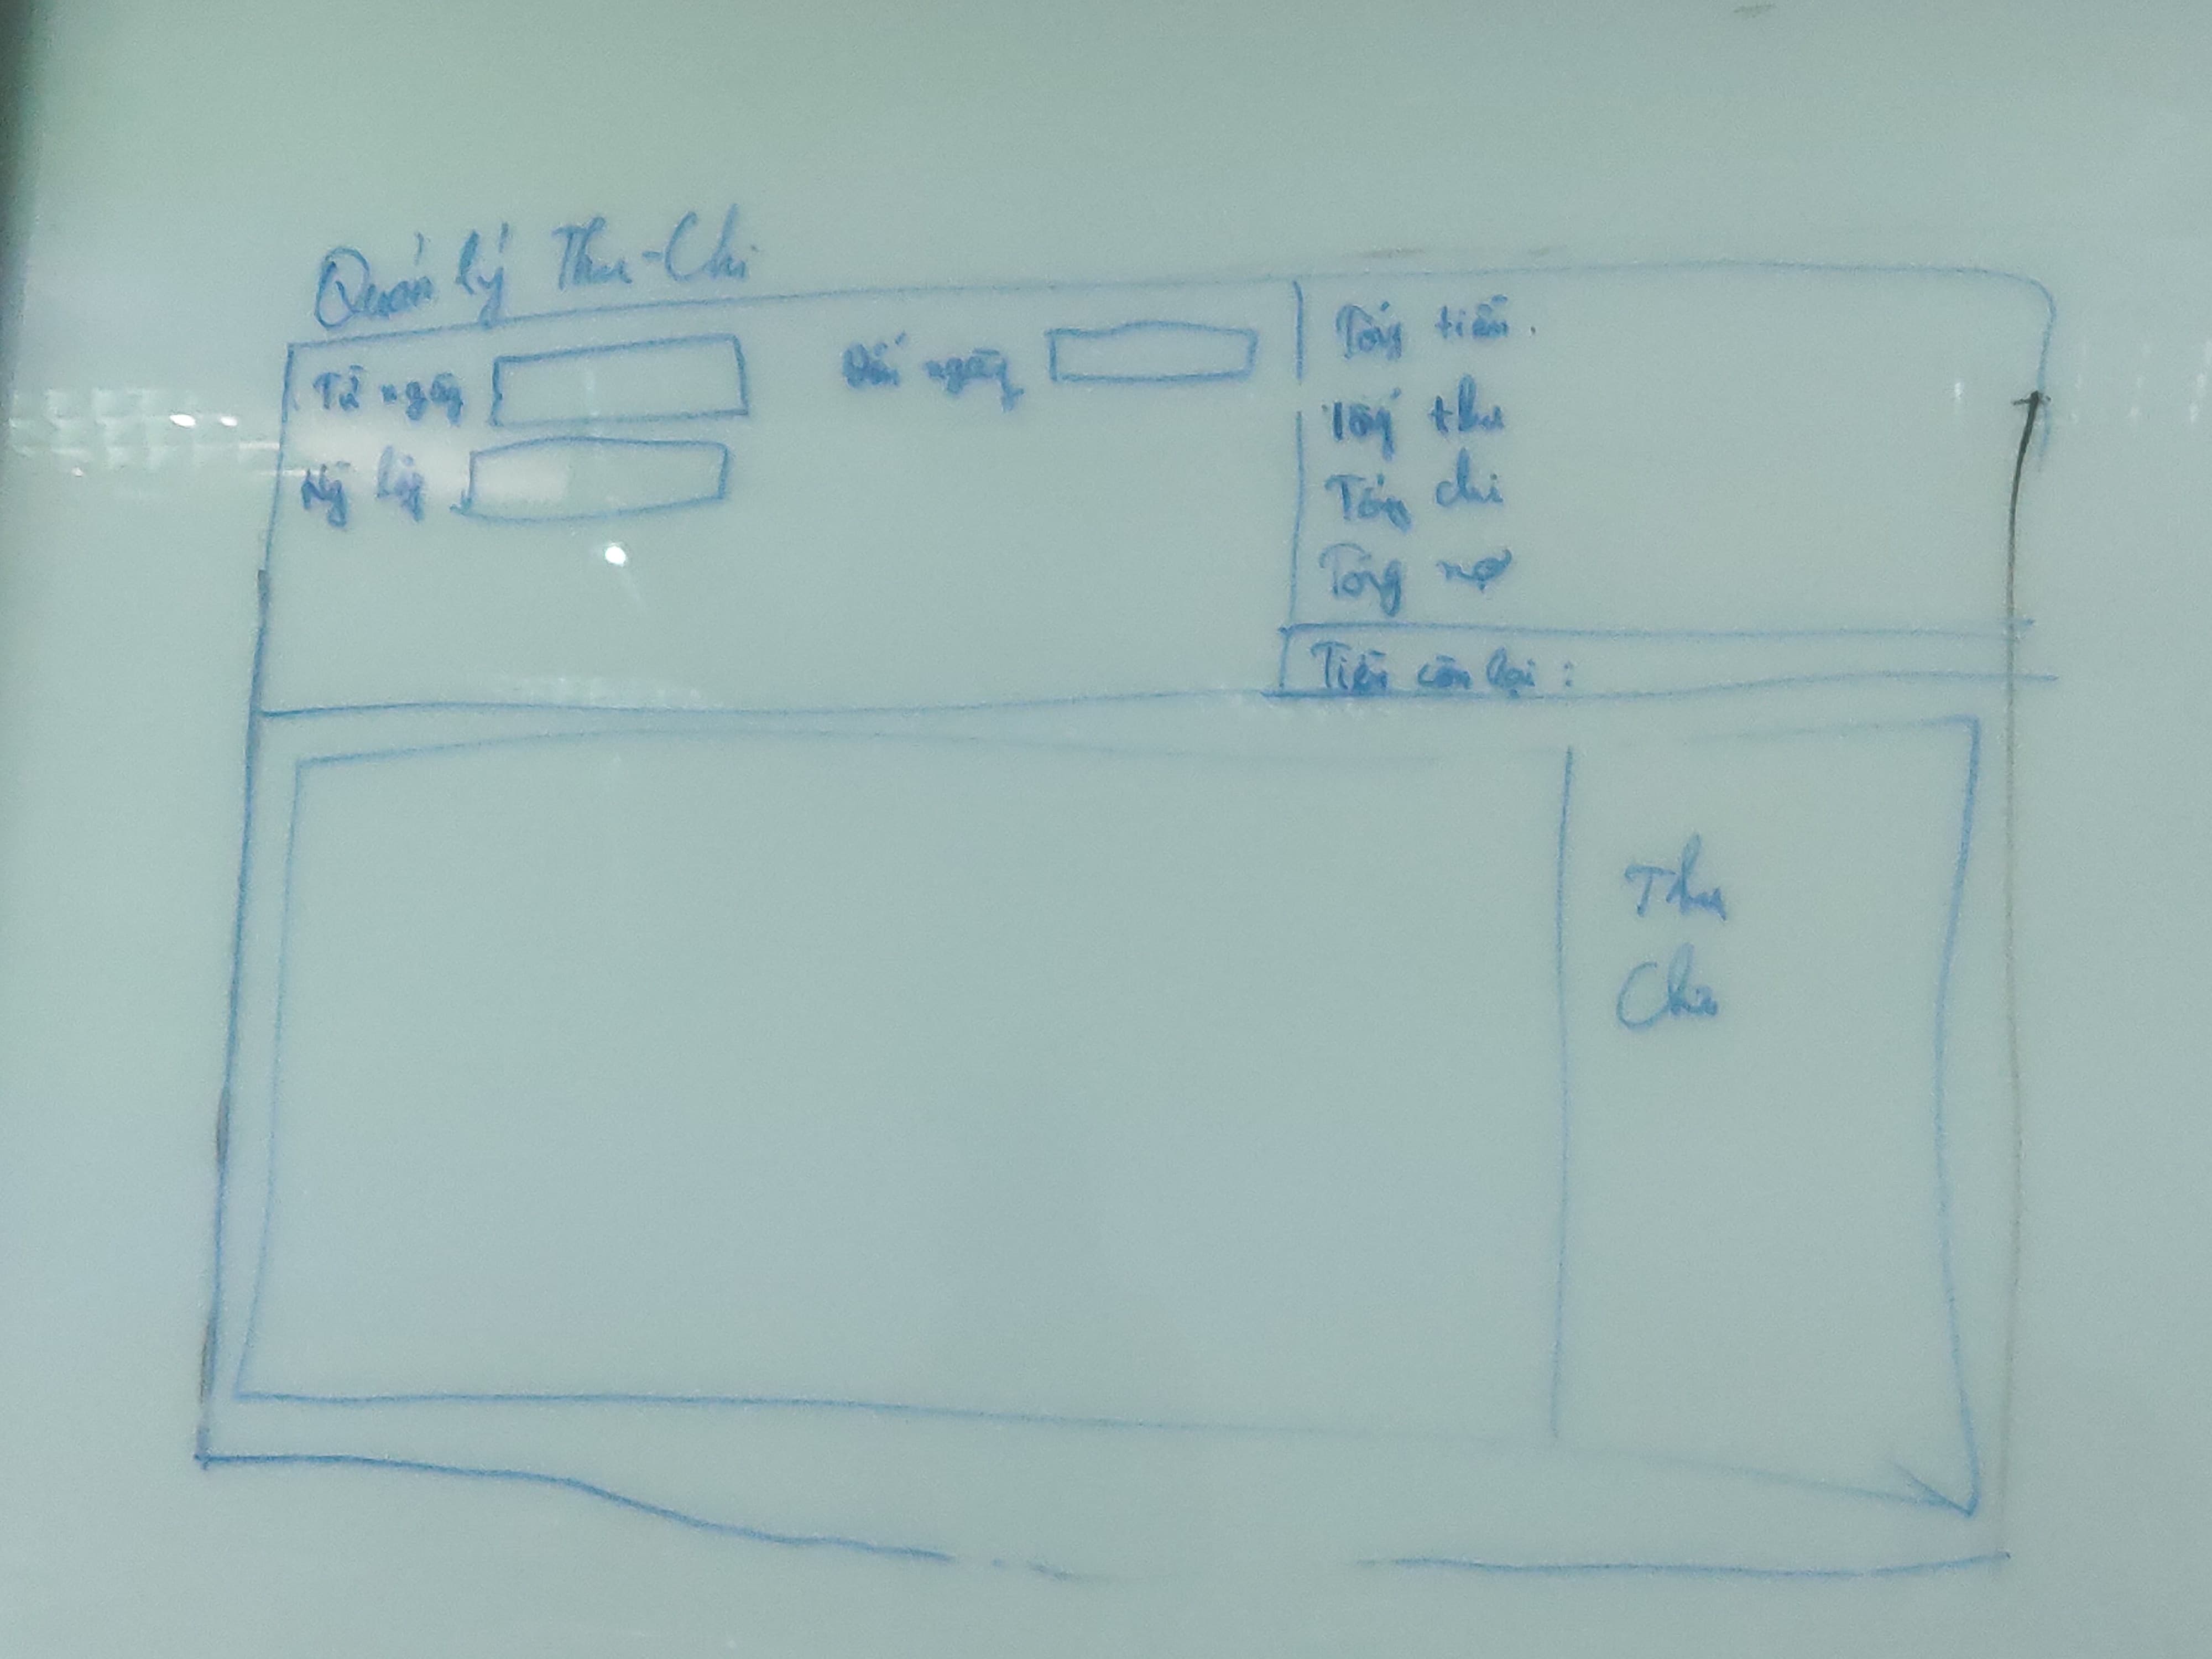 Quản lý Thu-Chi
Từ ngày
Đến ngày
Ngày lập
Tổng tiền.
Tổng thu
Tổng chi
Tổng nợ
Tiền còn lại :
Thu
Chi